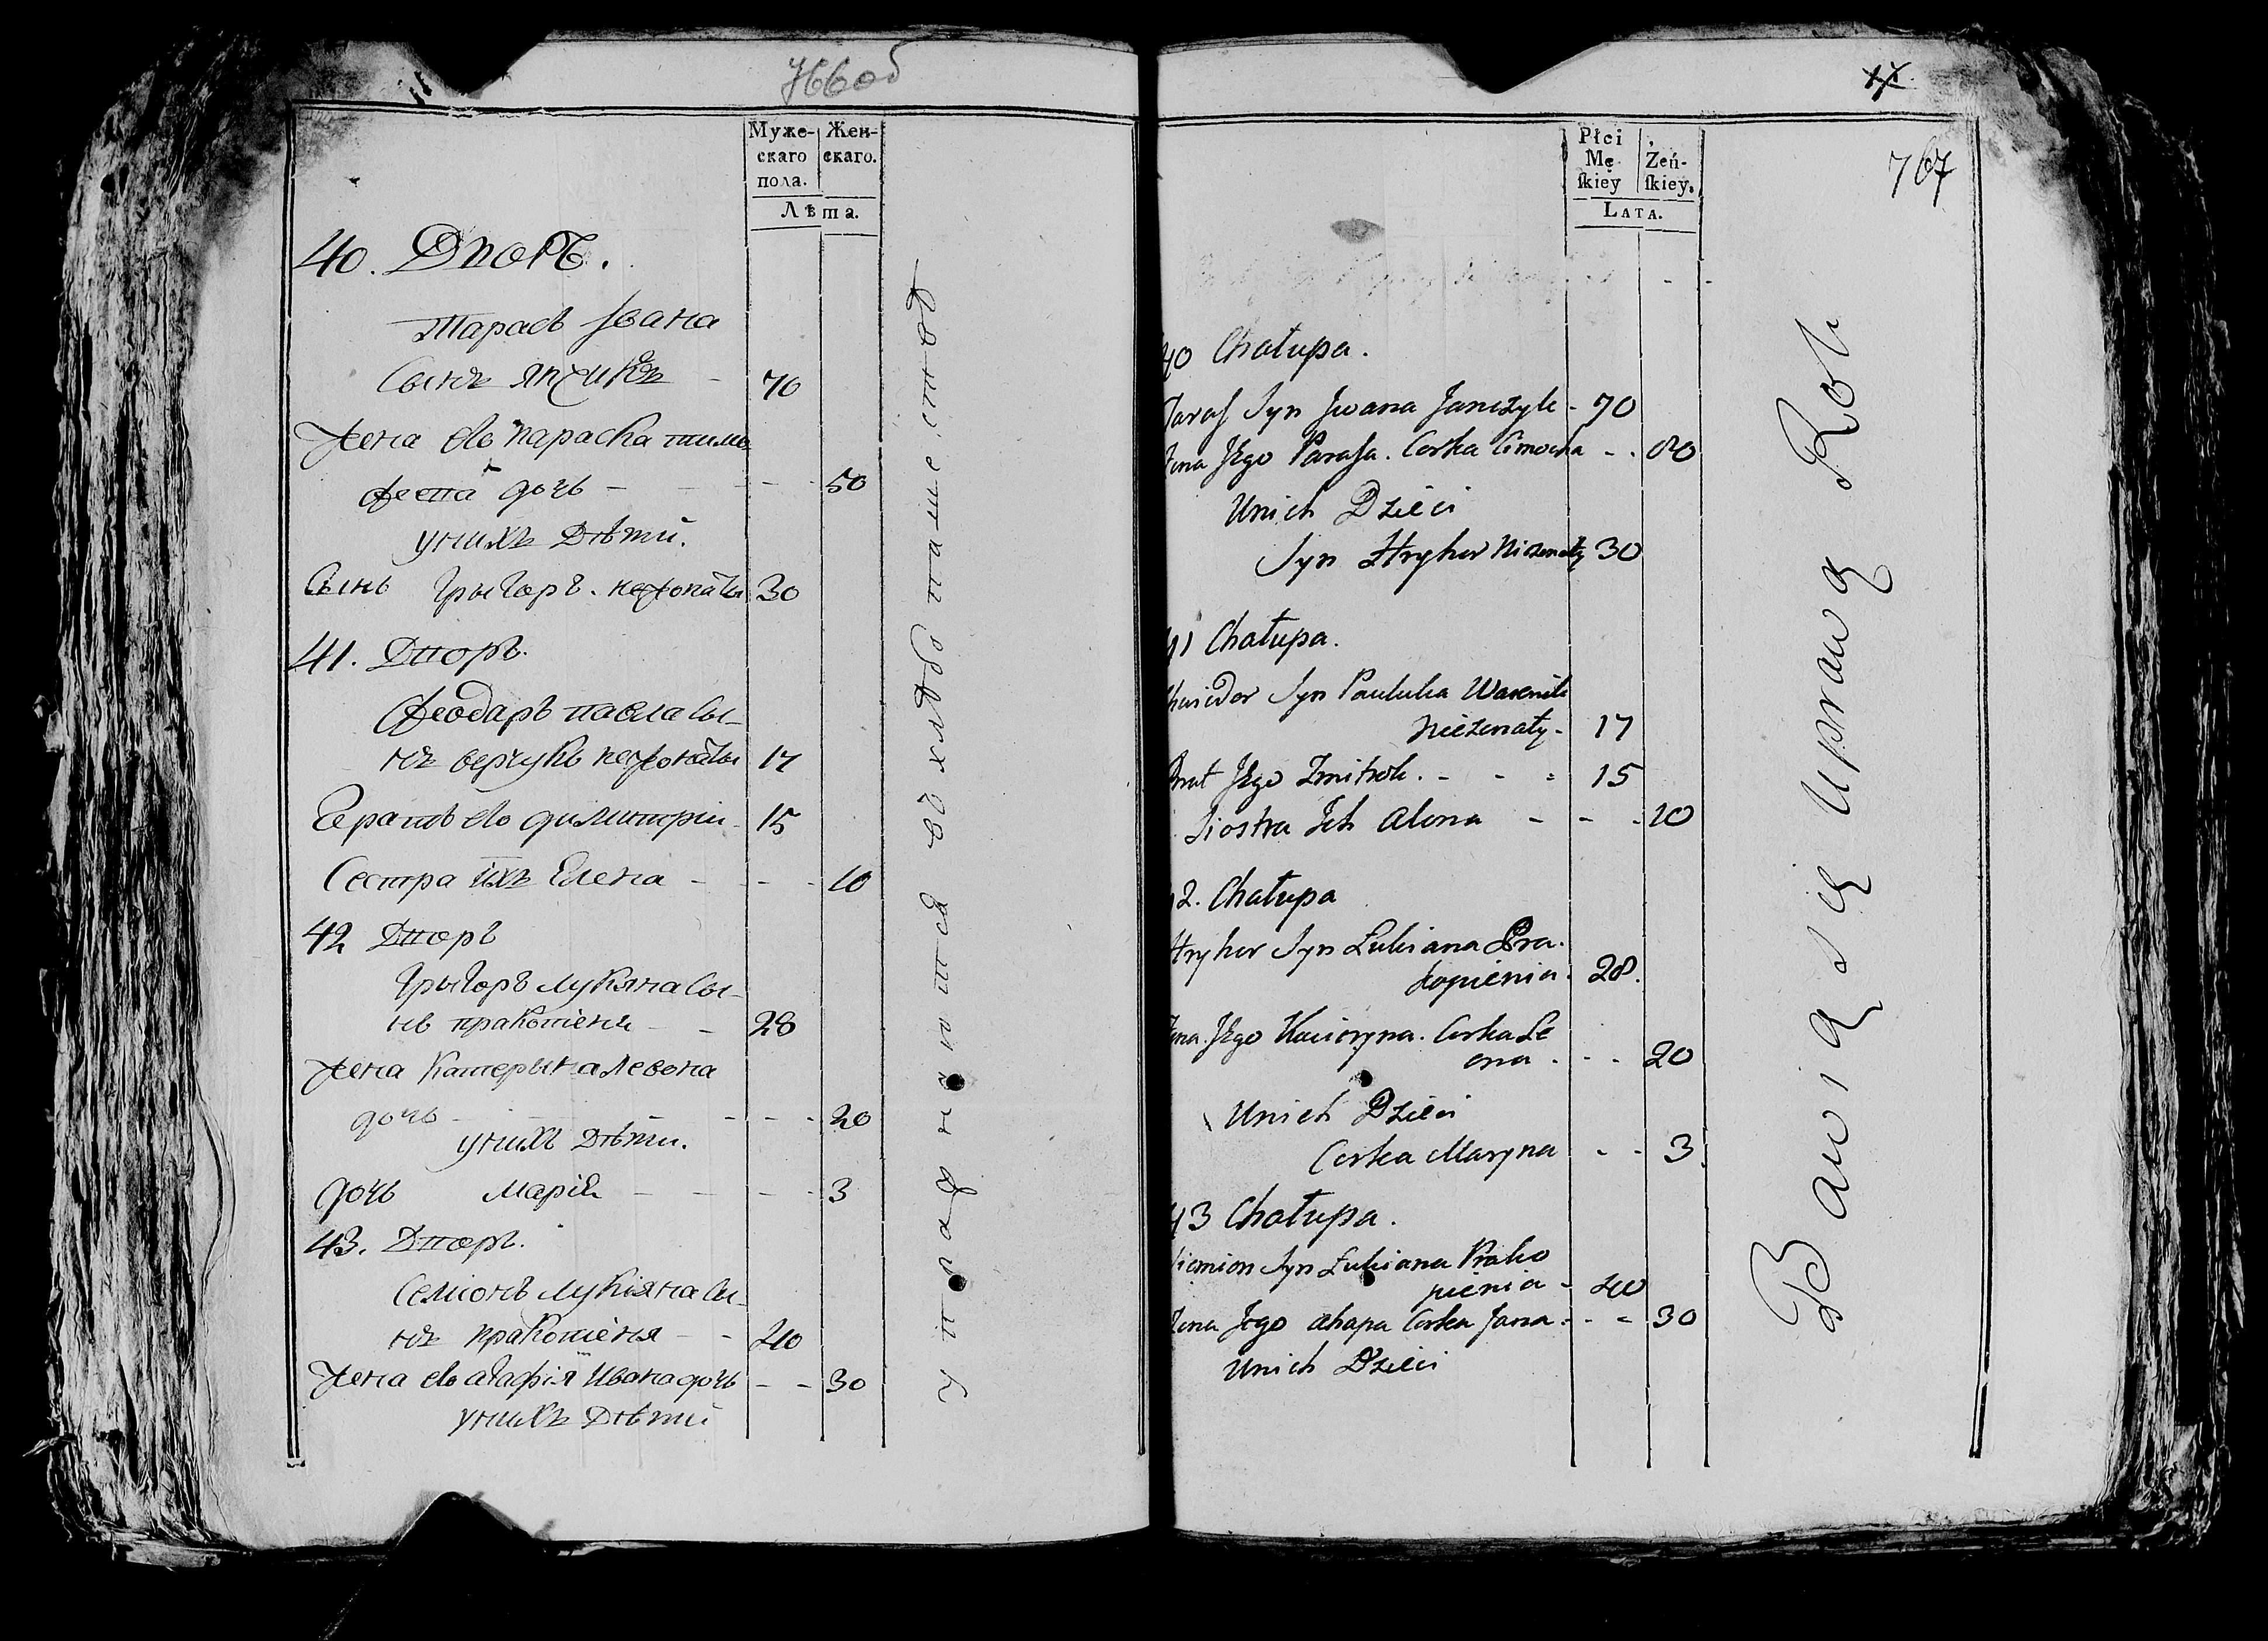 766об
Муже-
скаго
пола.
Жен-
скаго.
Лѣта.
40. Дворъ.
Тарасъ Івана
Сынъ Янчикъ - 70
Жена Его Параска тимо
феева дочь - - - 50
унихъ Дѣти.
Сынъ Грыгоръ. нежонаты 30
41. Дворъ.
Феодаръ павла сы-
нъ верчукъ нежонаты 17
Братъ Его димитрiи 15
Сестра ихъ Елена - - - 10
42 Дворъ
Грыгоръ Лукяна сы-
нъ пракопеня - - 28
Жена Катерына Левона
дочь - - - 20
унихъ Дѣти.
дочь Марiя - - - 3
43. Дворъ.
Семiонъ Лукiяна сы-
нъ пракопеня - - 40
Жена Его агафiя Ивана дочь - - 30
унихъ Дѣти
упражняются въ хлебопашестве
17
767
Płci
Mę-
skiey
Żeń-
skiey.
LATA.
40 Chałupa.
Taras Syn Jwana Janczyk - 70
Żona Jego Parasa. Corka Cimocha - - 50
Unich Dzieci
Syn Hryhor Nieżenaty 30
41 Chałupa.
Chwiedor Syn Pauluka
Nieżenaty - 17
Brat Jego Zmitrok. - - - 15
Siostra Ich Alona - - - 10
42. Chałupa
Hryhor Syn Łukiana Pra-
kopienia. 28.
Żona Jego Kacioryna. Corka Le
ona - - - 20
Unich Dzieci
Corka Maryna - - 3
43 Chałupa.
Siemion Syn Łukiana Prako
pienia - 40
Żona Jego Ahapa Corka Jana - - - 30
Unich Dzieci
Bawią się Uprawą Roli